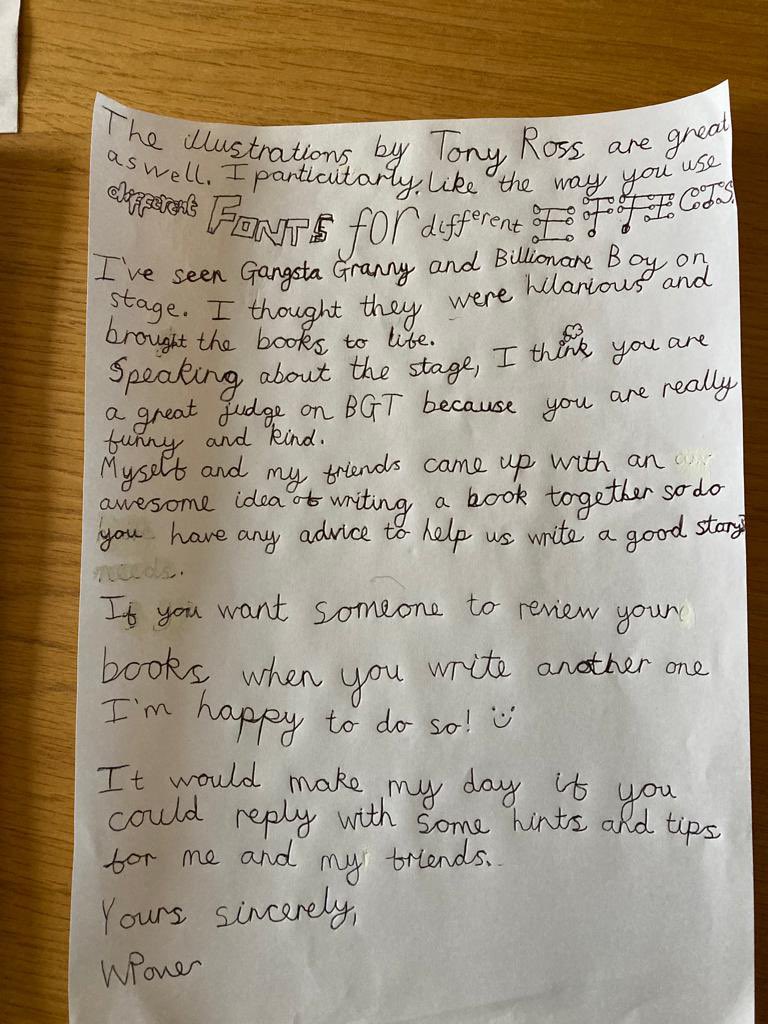 The illustrations by Tony Ross are great
as well. I particularly like the way you use
different FONTS for different EFFECTS.
I've seen Gangsta Granny and Billionare Boy on
stage. I thought they were hilarious and
brought the books to life.
Speaking about the stage, I think you are
a great judge on BGT because you are really
funny and kind.
Myself and my friends came up with an
awesome idea of writing a book together so do
you have any advice to help us write a good story?
If you want someone to review your
books when you write another one
I'm happy to do so!
It would make my day if you
could reply with some hints and tips
for me and my friends.
Yours sincerely,